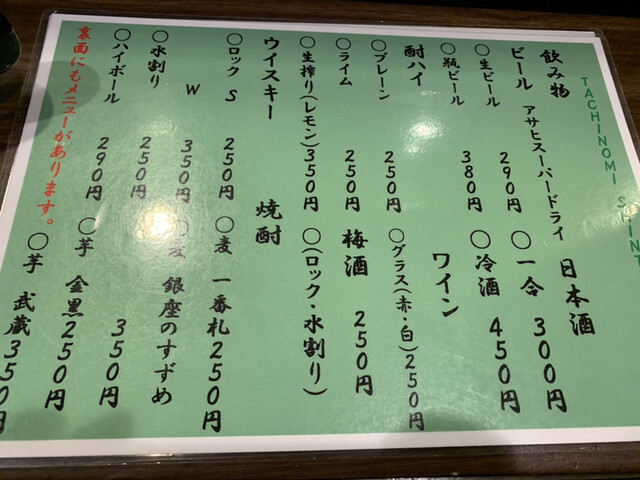 TACHINOMI SHINT
飲み物
ビール アサヒスーパードライ
○生ビール 290円
○瓶ビール 380円
酎ハイ
○プレーン 250円
○ライム 250円
○生搾り(レモン)350円
ウイスキー
○ロック S 250円
W 350円
○水割り 250円
○ハイボール 290円
日本酒
○一合 300円
○冷酒 450円
ワイン
○グラス(赤・白)250円
梅酒 250円
○(ロック・水割り)
焼酎
○麦 一番札250円
○麦 銀座のすずめ
350円
○芋 金黒250円
○芋 武蔵350円
裏面にもメニューがあります。